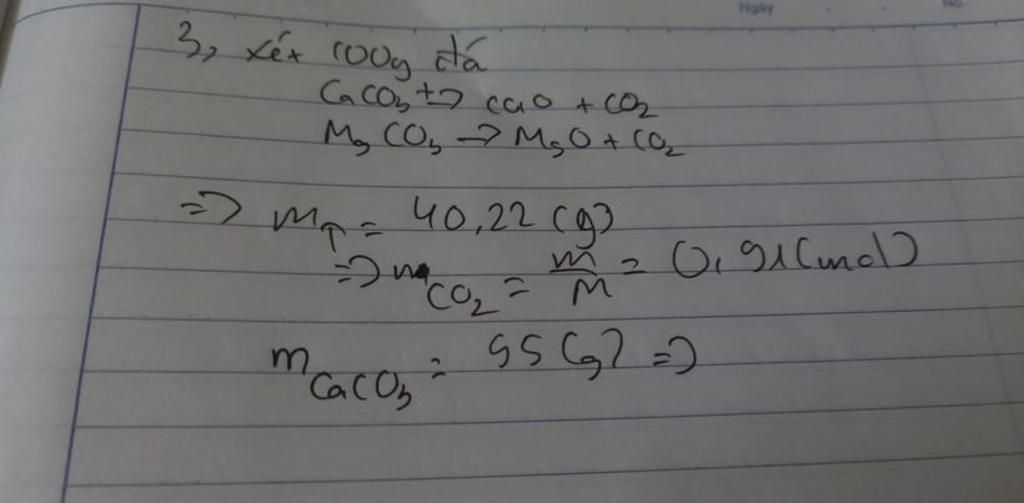 Ngày No.
3, xét 100g đá
CaCO3 t→ CaO + CO2
MgCO3 → MgO + CO2
=> m↑ = 40,22 (g)
=> nCO2 = m/M = 0,91 (mol)
mCaCO3 = (g) =>